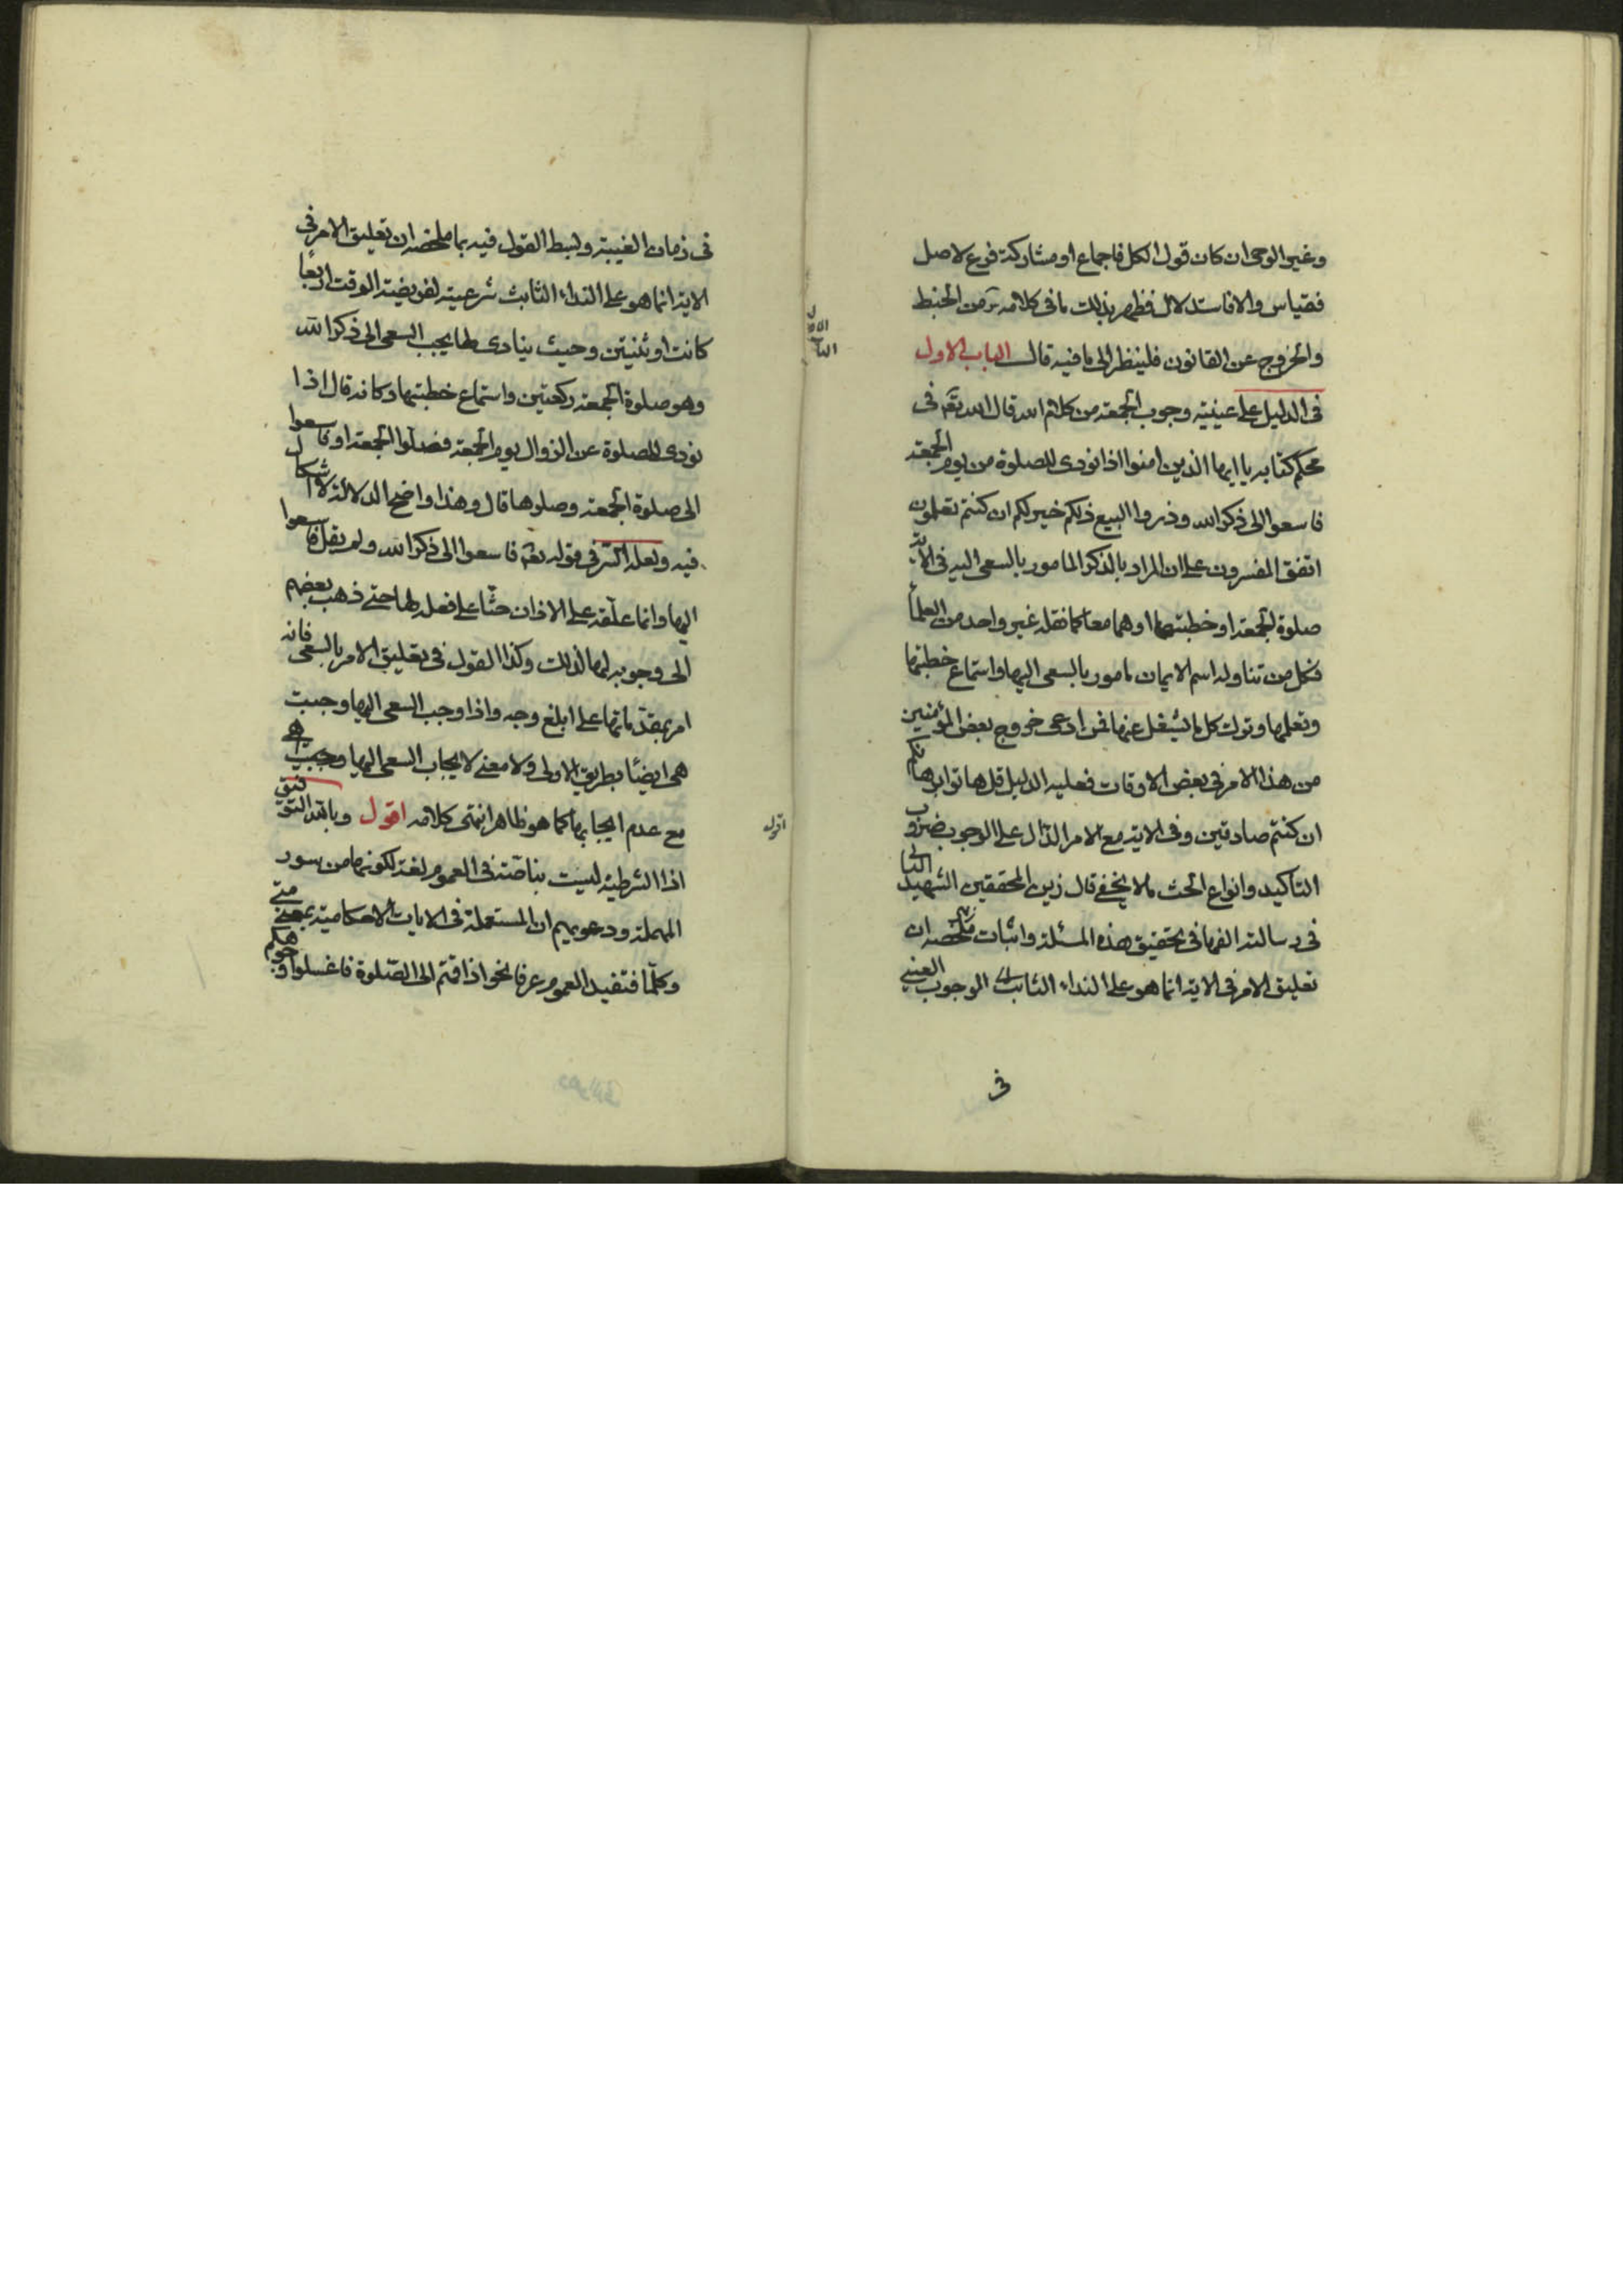 وغير الوحى ان كان قول الكل فاجماع او مشاركة فرع لاصل
فقياس والا فاستدلال فظهر بذلك ما فى كلامه من الخبط
والخروج عن القانون فلينظر الى ما فيه قال الباب الاول
فى الدليل على عينية وجوب الجمعة من كلام الله قال الله تعم فى
محكم كتابه يا ايها الذين امنوا اذا نودى للصلوة من يوم الجمعة
فاسعوا الى ذكر الله وذروا البيع ذلكم خير لكم ان كنتم تعلمون
اتفق المفسرون على ان المراد بالذكر المامور بالسعى اليه فى الاية
صلوة الجمعة او خطبتها او هما معا كما نقله غير واحد من العلمأ
فكل من تناوله اسم الايمان مامور بالسعى اليها واستماع خطبتها
وفعلها وترك كل ما يشغل عنها فمن ادعى خروج بعض المؤمنين
من هذا الامر فى بعض الاوقات فعليه الدليل قل هاتوا برهانكم
ان كنتم صادقين وفى الاية مع الامر الدال على الوجوب ضروب
التاكيد وانواع الحث ما لا يخفى قال زين المحققين الشهيد الثانى
فى رسالته الفها فى تحقيق هذه المسئلة واثبات ملخصه ان
تعليق الامر فى الاية انما هو على النداء الثابت الوجوب العينى
فى
فى زمان الغيبة وبسط القول فيه بما ملخصه ان تعليق الامر فى
الاية انما هو على النداء الثابت شرعيته لفريضة الوقت اربعا
كانت او ثنيتين وحيث ينادى لها يجب السعى الى ذكر الله
وهو صلوة الجمعة ركعتين واستماع خطبتها وكانه قال اذا
نودى للصلوة عن الزوال يوم الجمعة فصلوا الجمعة او فاسعوا
الى صلوة الجمعة وصلوها قال وهذا واضح الدلالة لا اشكال
فيه ولعله السر فى قوله تعم فاسعوا الى ذكر الله ولم يقل فاسعوا
اليها وانما علقه على الاذان حثا على فعله لها حتى ذهب بعضهم
الى وجوبه لها لذلك وكذا القول فى تعليق الامر بالسعى فانه
امر بمقدماتها على ابلغ وجه واذا وجب السعى اليها وجبت
هى ايضا بطريق الاولى ولا معنى لايجاب السعى اليها
مع عدم ايجابها كما هو ظاهر انتهى كلامه اقول وبالله التوفيق
اقول
اذا الشرطية ليست بناصة فى العموم لغة لكونها من سور
المهملة ودعويهم ان المستعملة فى الايات الاحكامية بمعنى متى
وكلما فتفيد العموم عرفا نحو اذا قمتم الى الصلوة فاغسلوا وجوهكم